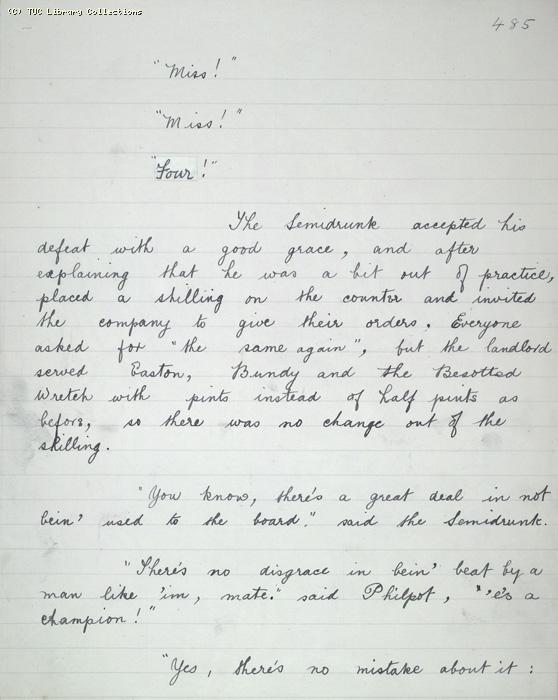 (C) TUC Library Collections
485
"Miss!"
"Miss!"
"Four!"
The Semidrunk accepted his
defeat with a good grace, and after
explaining that he was a bit out of practice,
placed a shilling on the counter and invited
the company to give their orders. Everyone
asked for "the same again", but the landlord
served Easton, Bundy and the Besotted
Wretch with pints instead of half pints as
before, so there was no change out of the
shilling.
"You know, there's a great deal in not
bein' used to the board." said the Semidrunk.
"There's no disgrace in bein' beat by a
man like 'im, mate." said Philpot, "'e's a
champion!"
"Yes, there's no mistake about it: